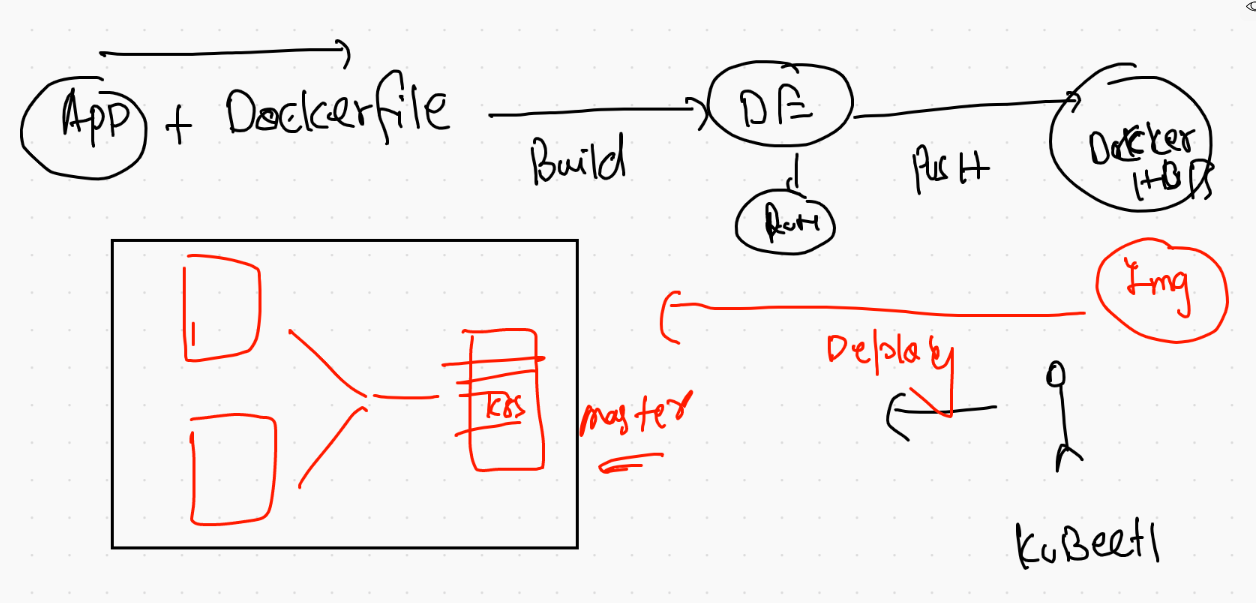 App + Dockerfile
Build
DE
Push
Docker
HUB
Run
Img
Deploy
K8s
master
KuBectl